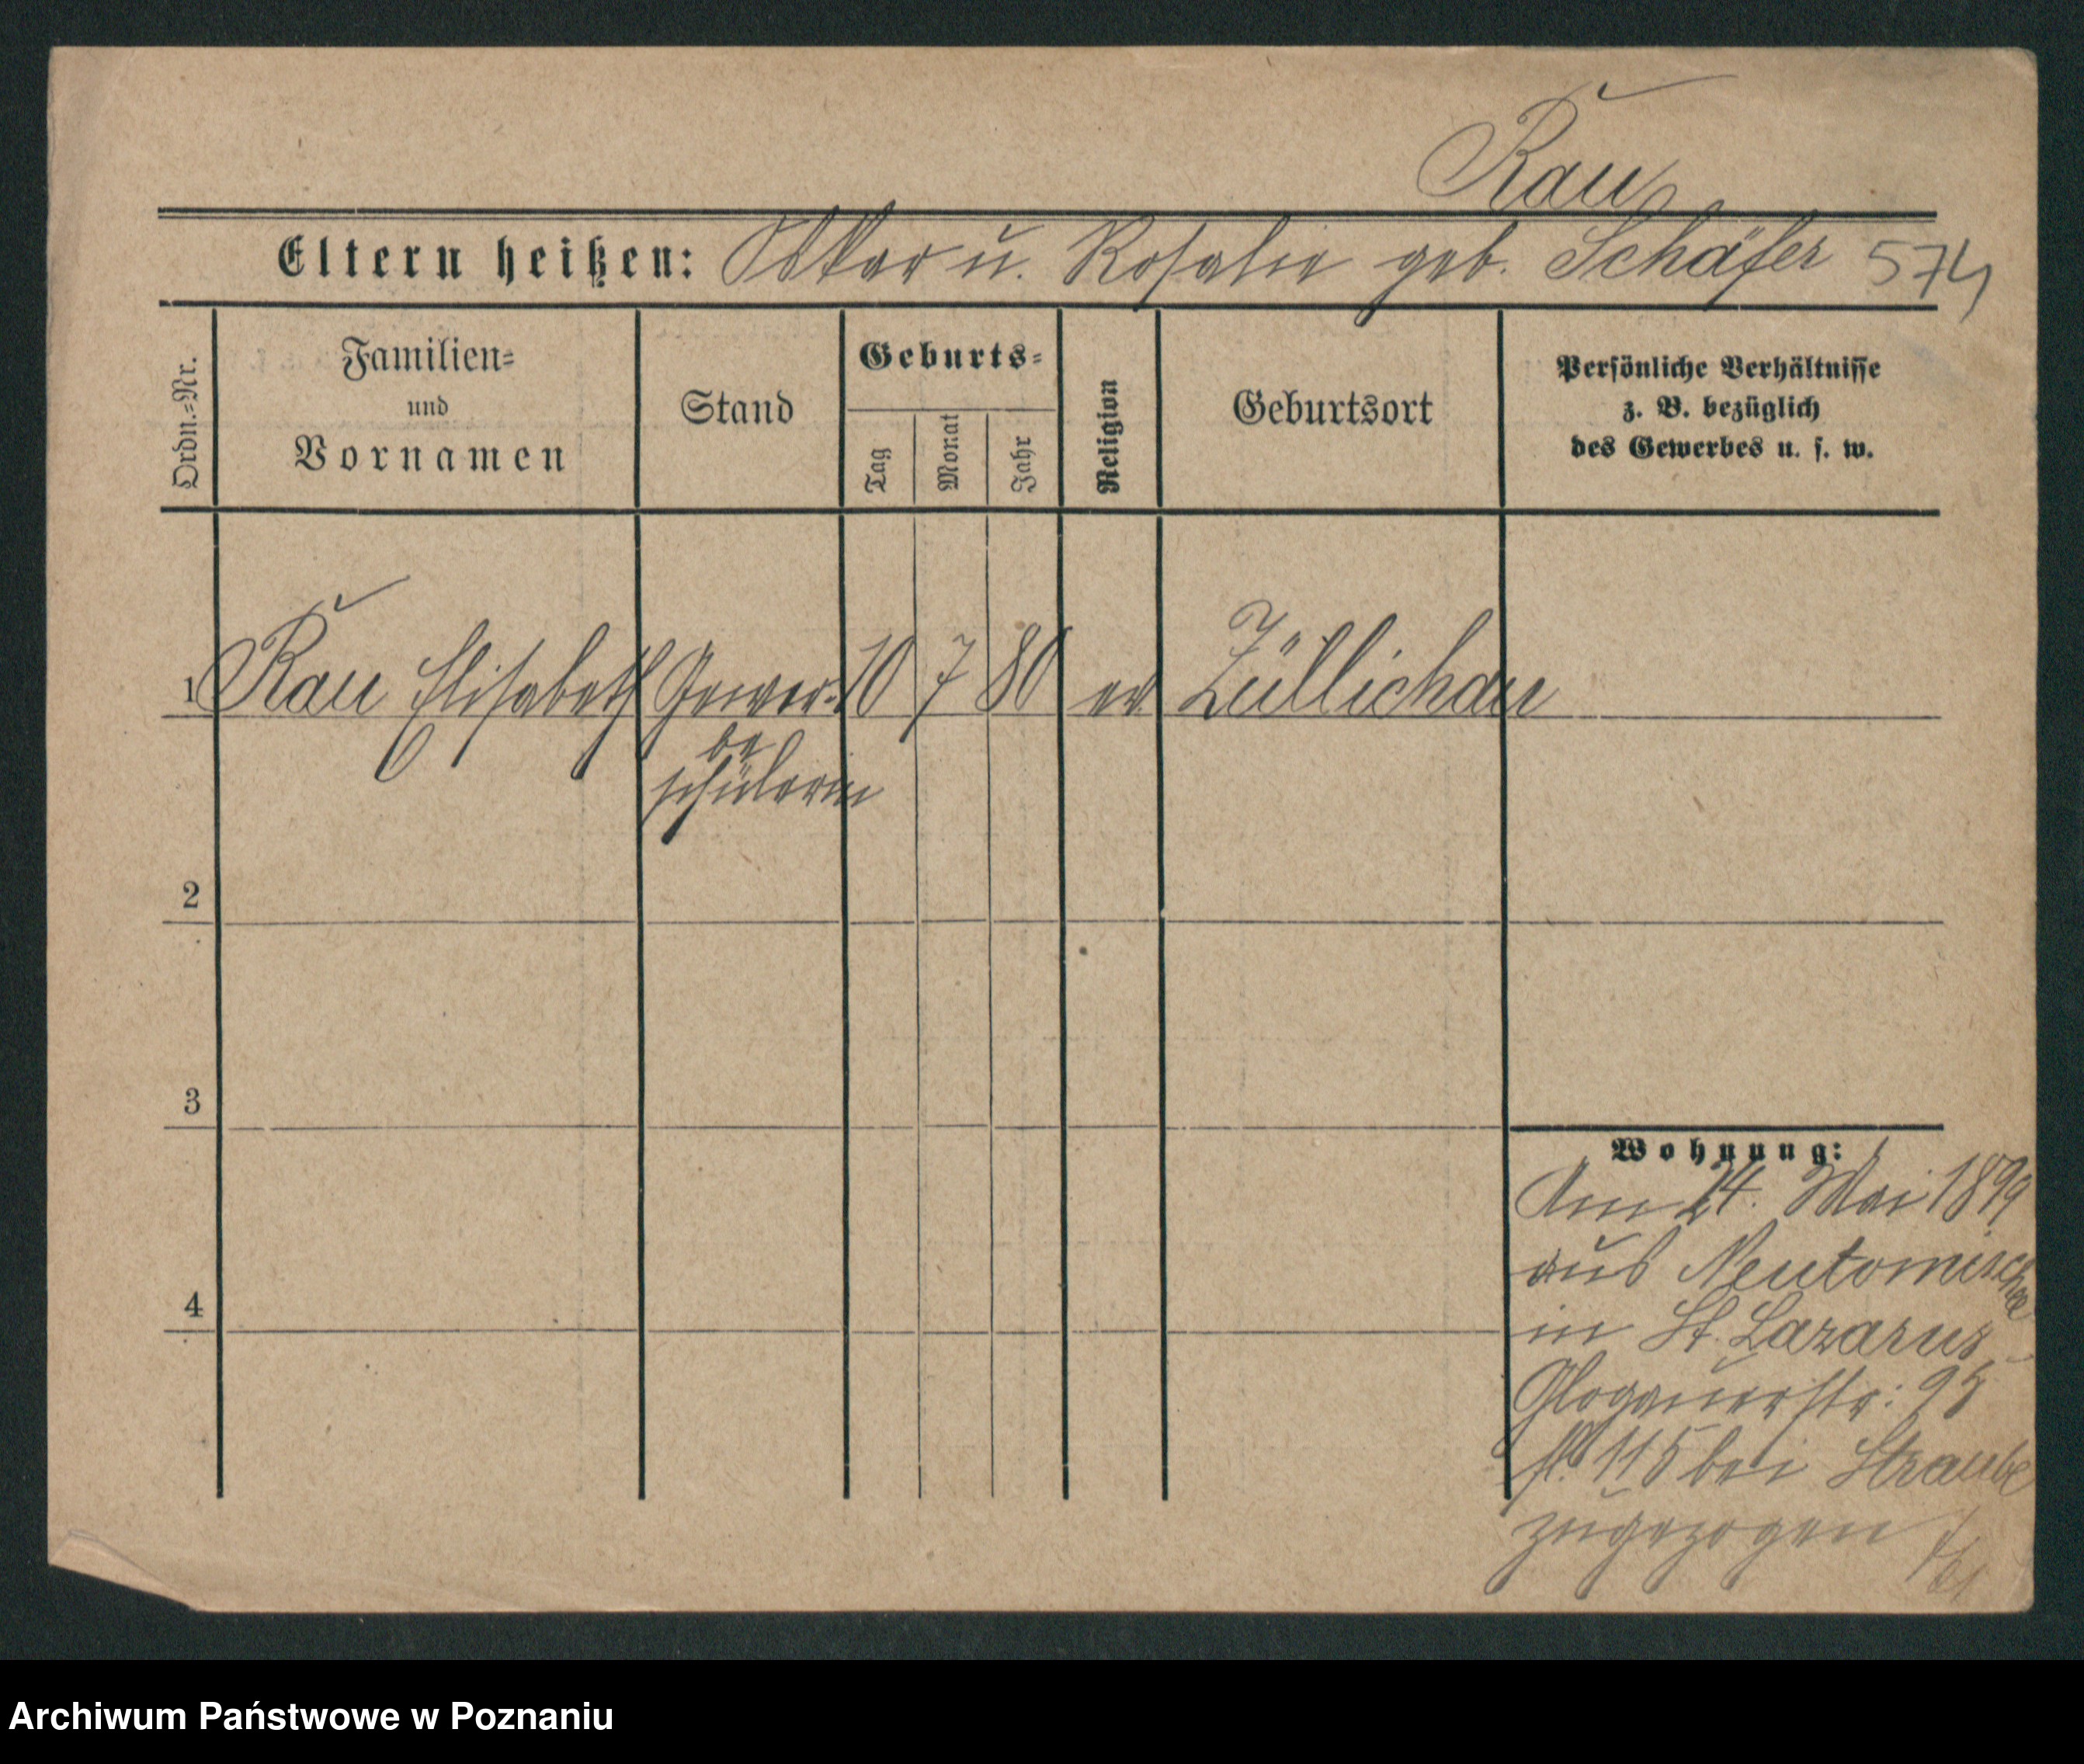 Rau
Eltern heißen: Oskar u. Rosalie geb. Schäfer 574
Ordn.=Nr.
Familien=
und
Vornamen
Stand
Geburts=
Tag
Monat
Jahr
Religion
Geburtsort
Persönliche Verhältnisse
z. B. bezüglich
des Gewerbes u. s. w.
1 Rau Elisabeth Gewer= 10 7 80 ev Züllichau
be
schülerin
2
3
4
Wohnung:
Am 24. Mai 1899
aus Neutomischel
in St. Lazarus
Glogauerstr: 95
115 bei Straube
zugezogen
Archiwum Państwowe w Poznaniu